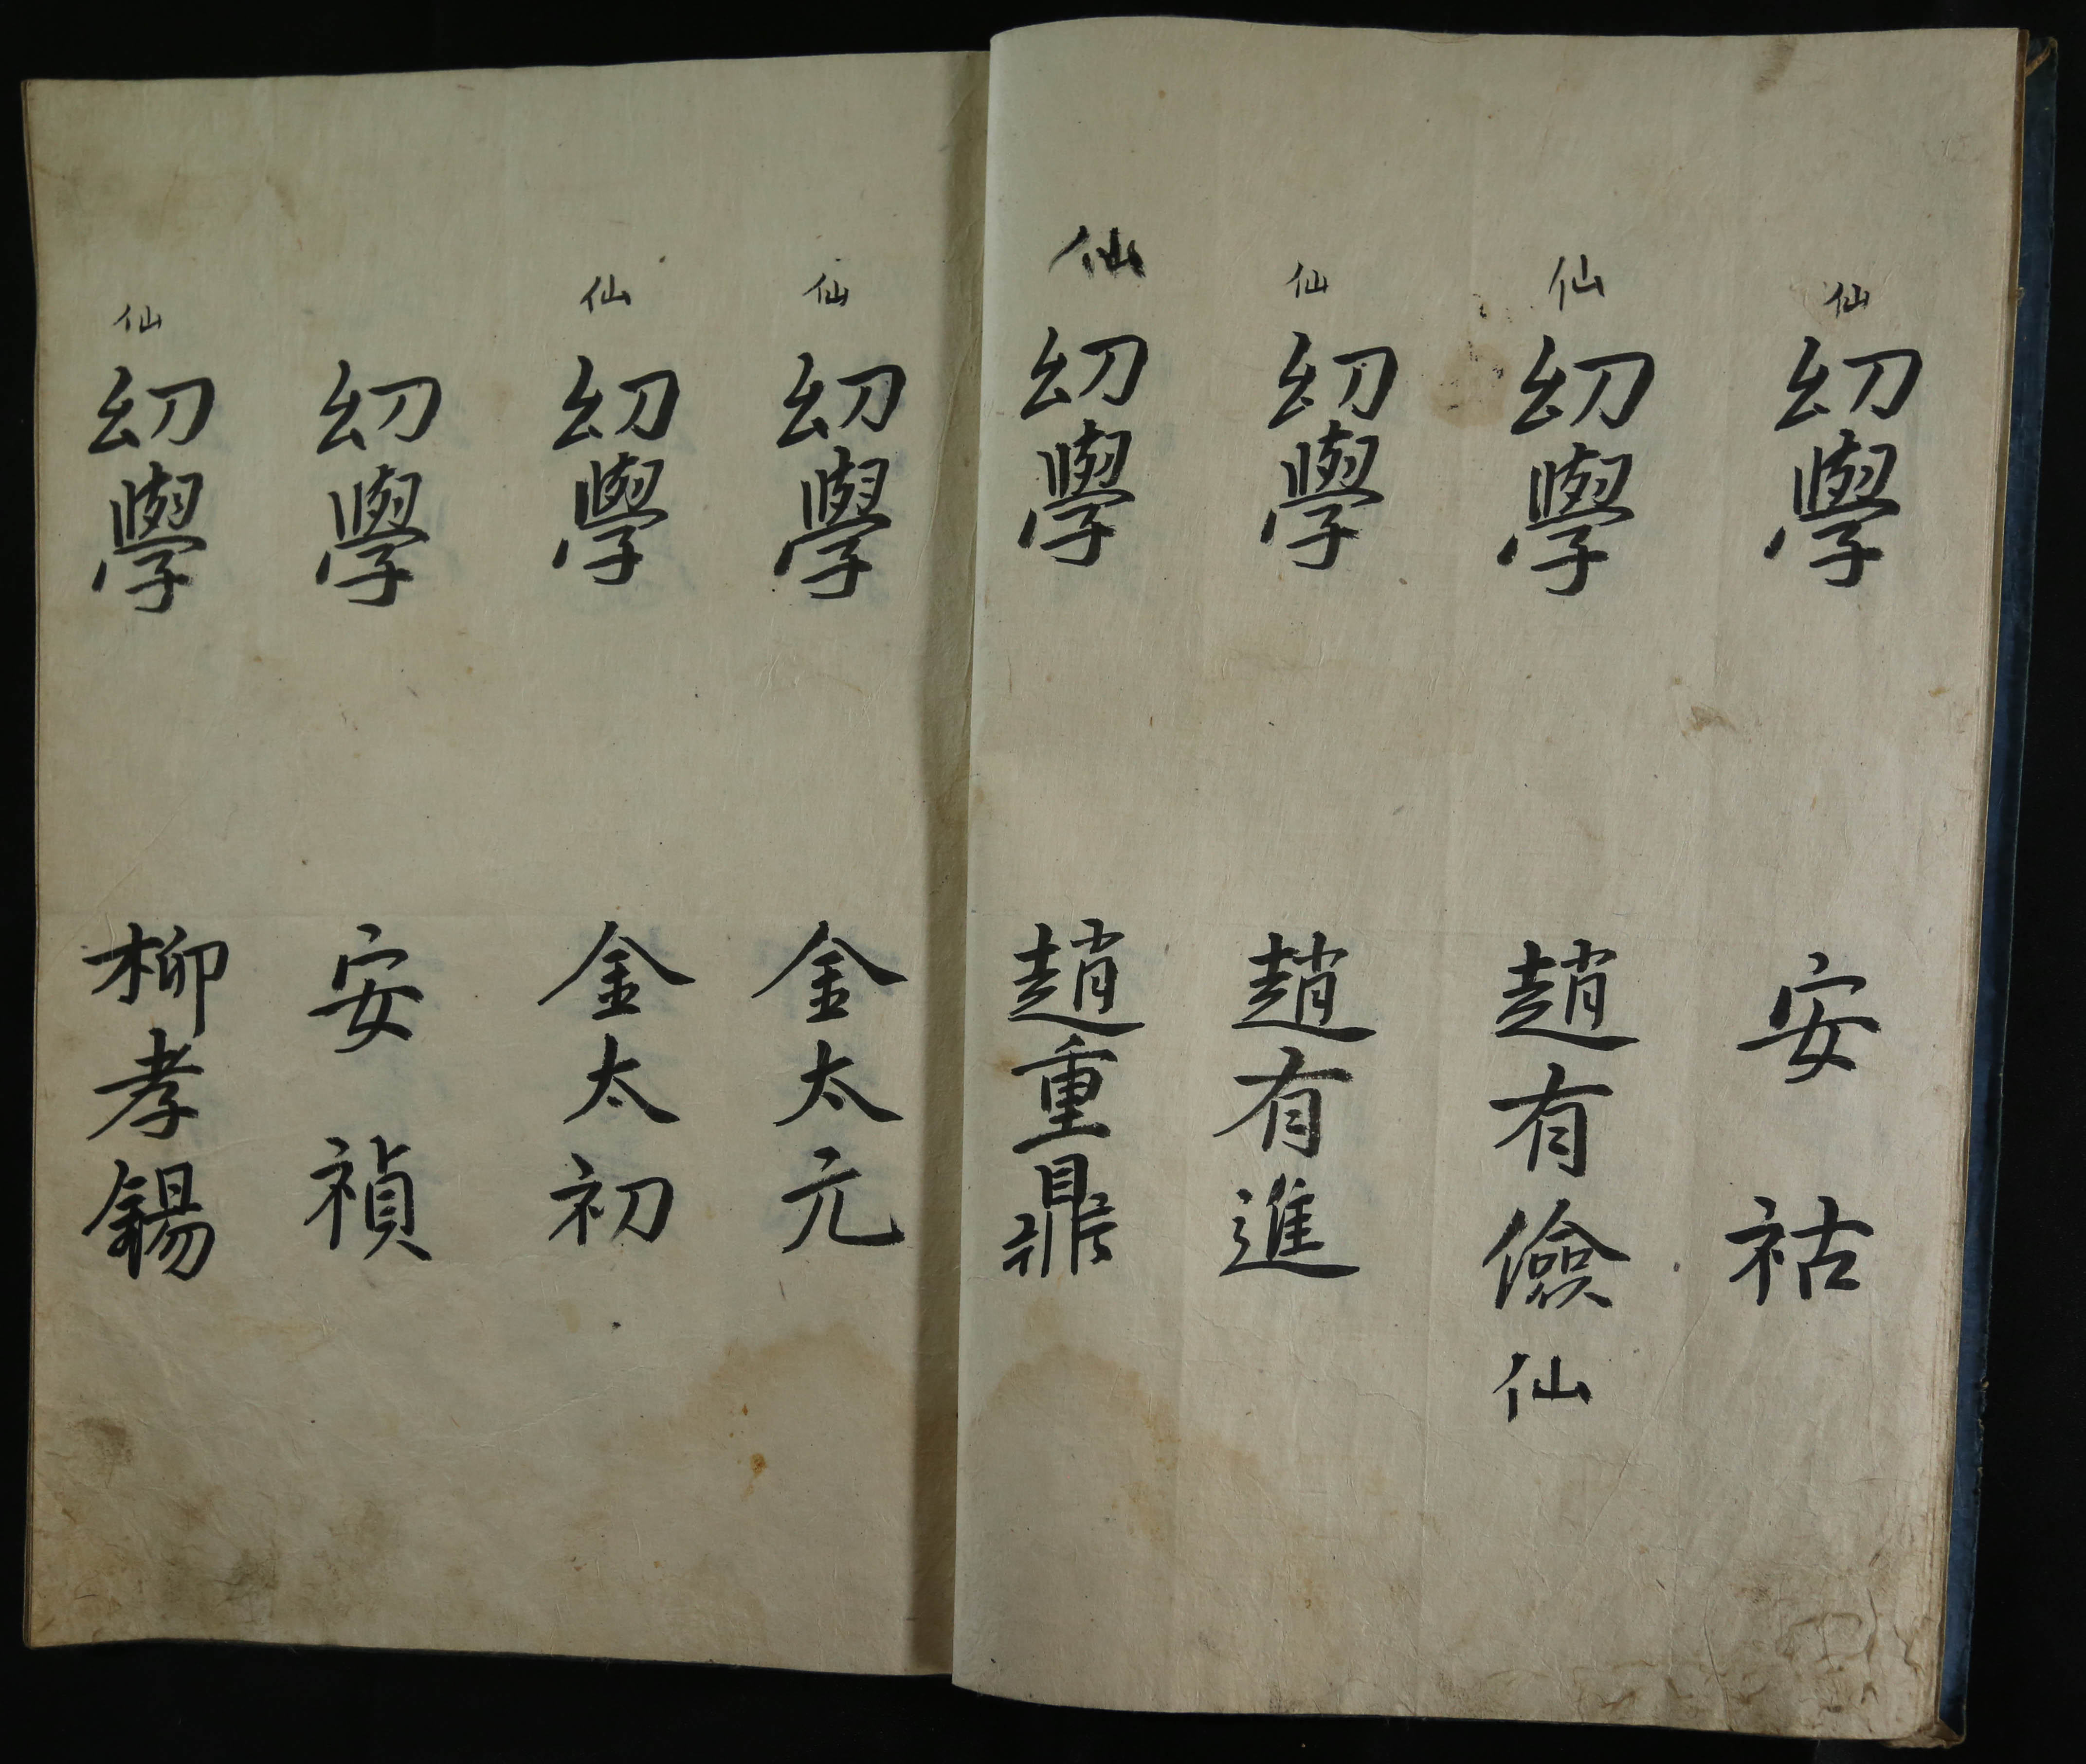 仙 幼學 安祜
仙 幼學 趙有儉 仙
仙 幼學 趙有進
仙 幼學 趙重鼎
仙 幼學 金太元
仙 幼學 金太初
幼學 安禎
仙 幼學 柳孝錫